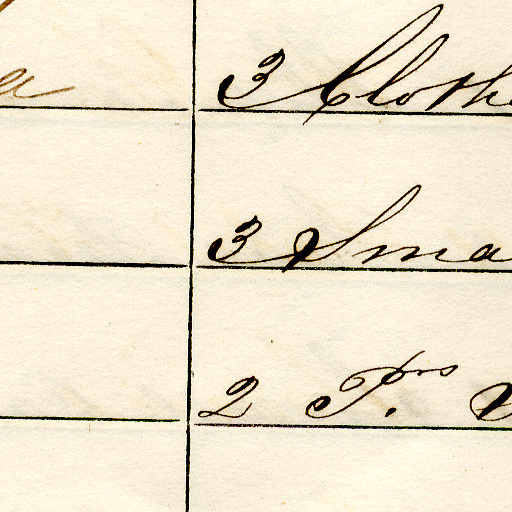 a 3 Clothe
3 Sma
2 Prs.